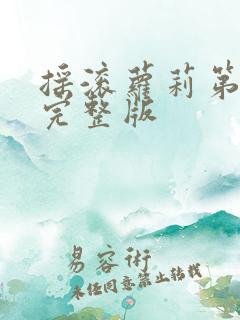 揉滚蘿莉第
完整版
易容術
未经同意禁止转载